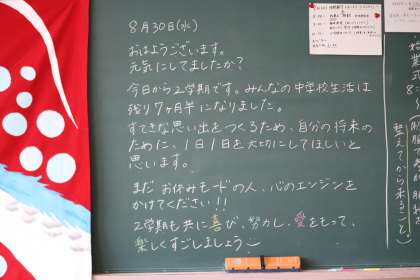 8月30日(水)
おはようございます。
元気にしてましたか?
今日から2学期です。みんなの中学校生活は
残り7ヶ月半になりました。
すてきな思い出をつくるため、自分の将来の
ために、1日1日を大切にしてほしいと
思います。
まだお休みモードの人、心のエンジンを
かけてください!!
2学期も共に喜び、努力し、愛をもって、
楽しくすごしましょう
整えてから来ること。